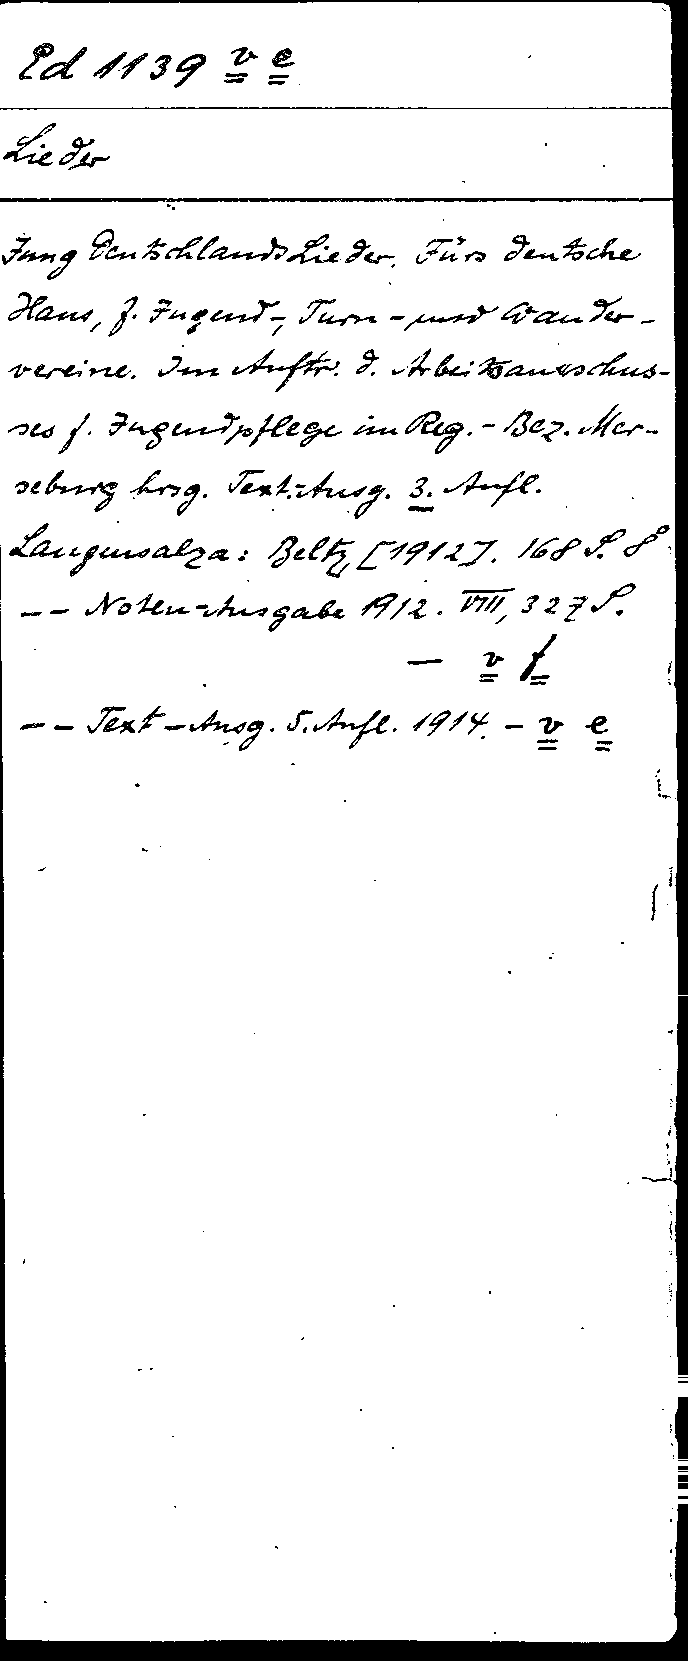 Ed 1139 v e
Lieder
Jung Deutschlands Lieder. Fürs deutsche
Haus, f. Jugend-, Turn- und Wander-
vereine. Im Auftr. d. Arbeitsausschus-
ses f. Jugendpflege im Reg.-Bez. Mer-
seburg hrsg. Text-Ausg. 3. Aufl.
Langensalza: Beltz [1912]. 168 S. 8°
-- Noten-Ausgabe 1912. VIII, 327 S.
— v f
-- Text-Ausg. 5. Aufl. 1914. - v e